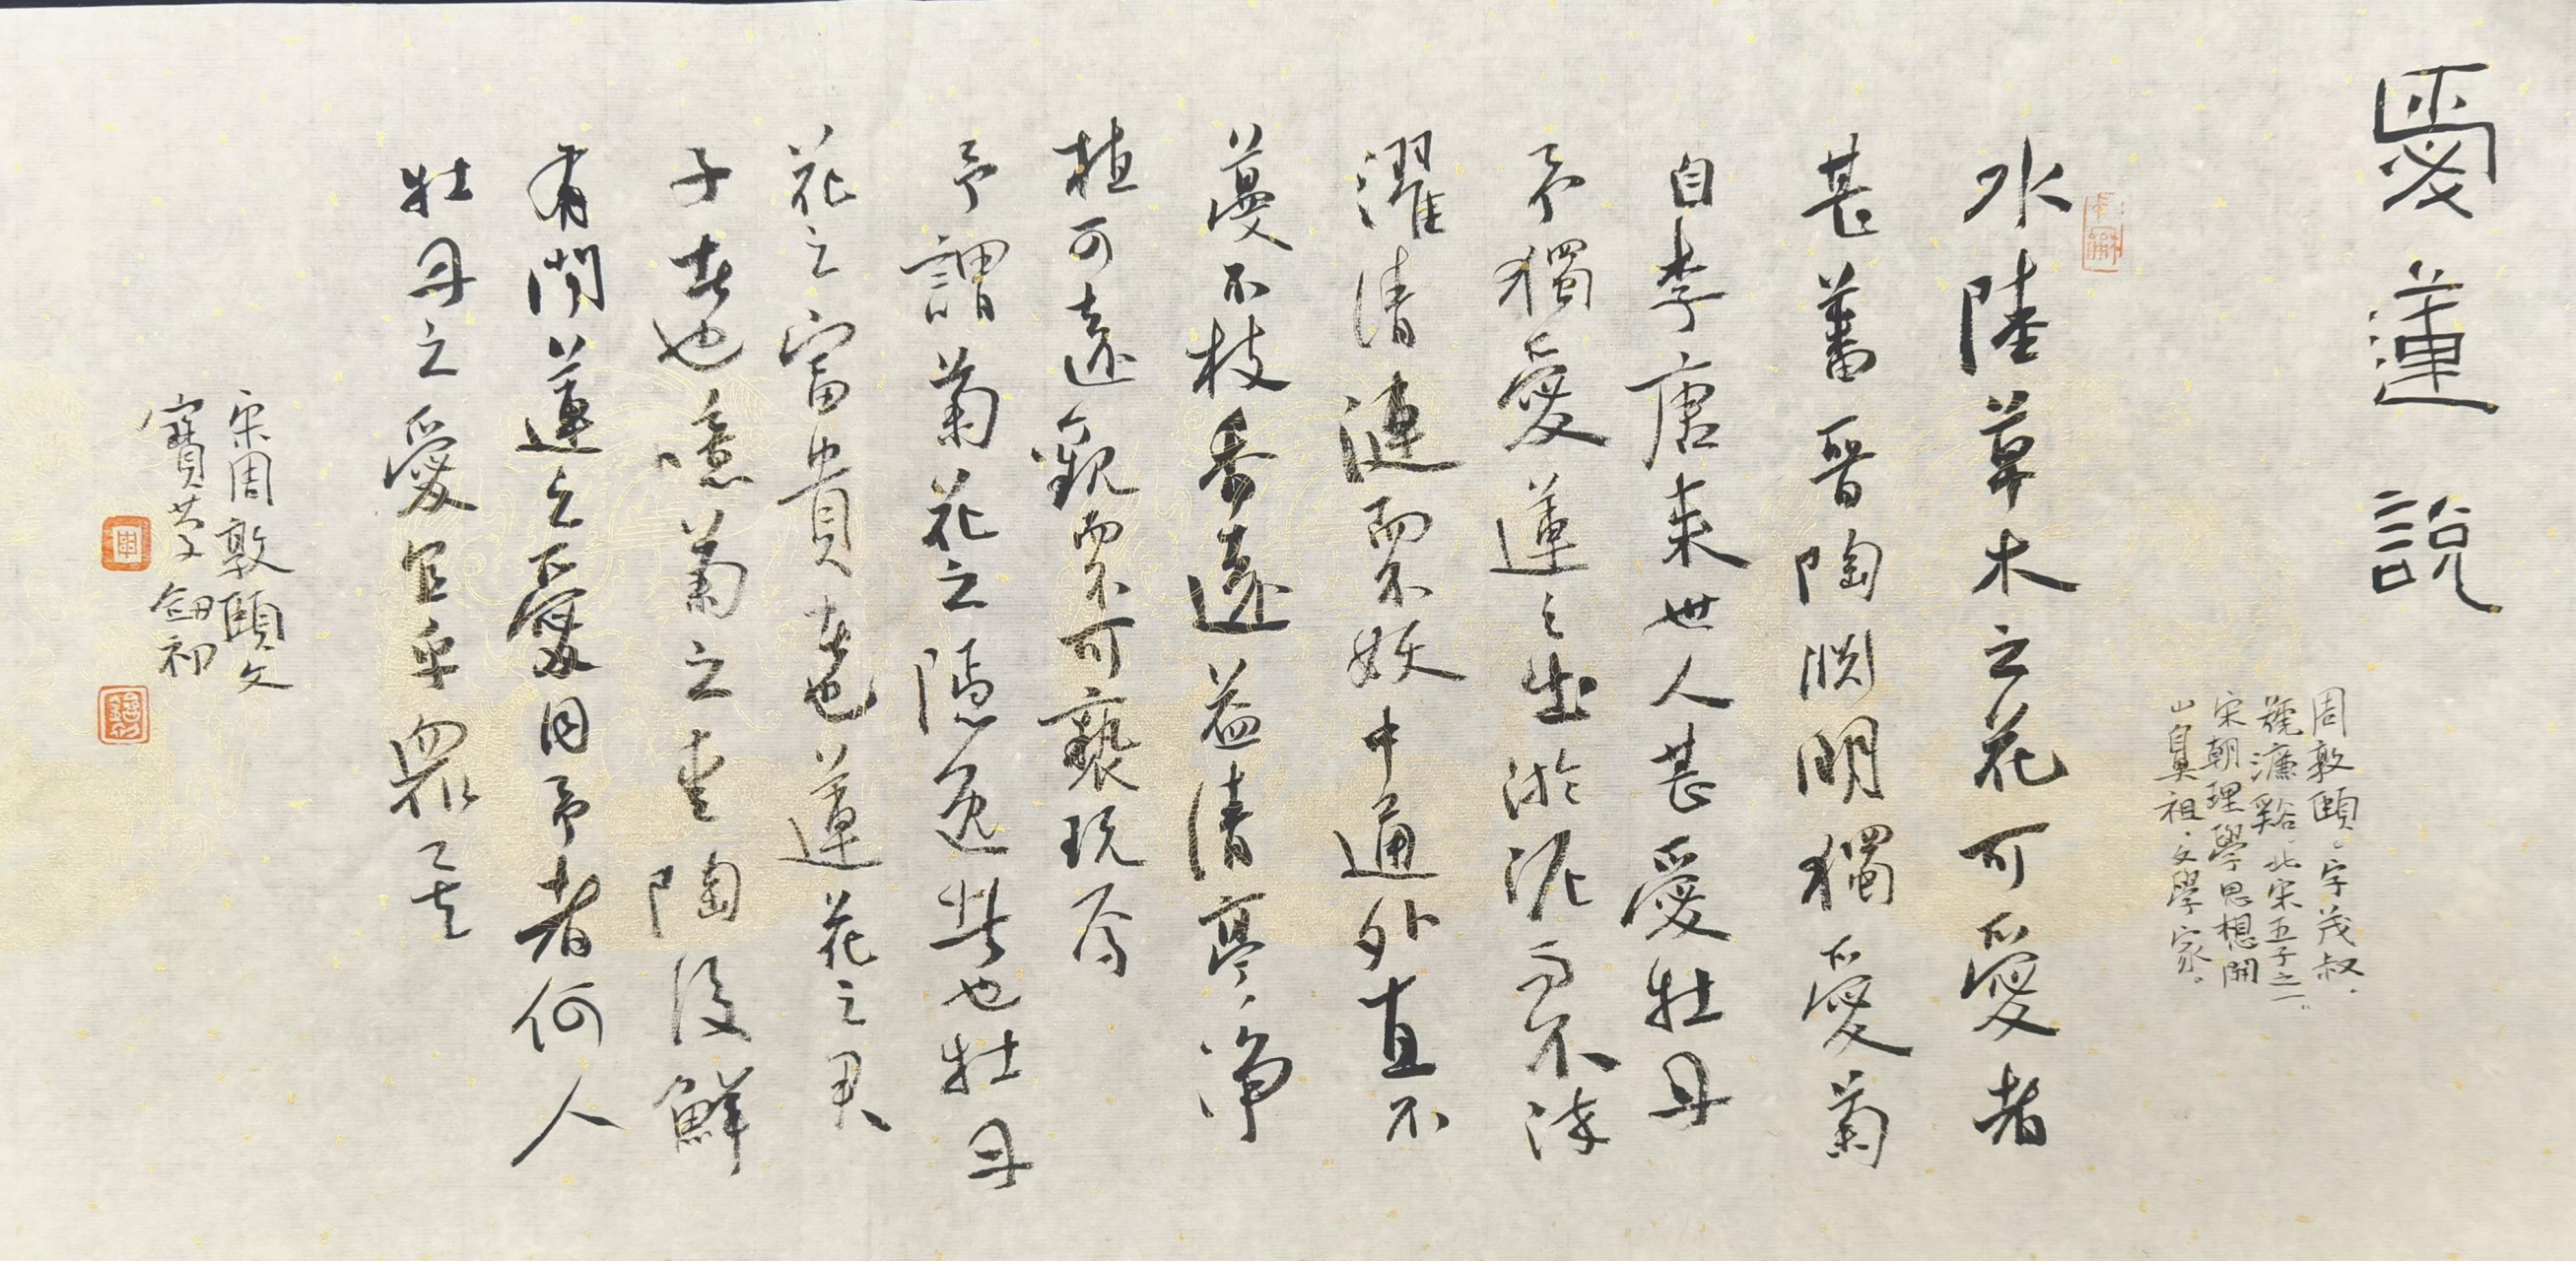 愛蓮說
周敦頤。字茂叔。
號濂谿。北宋五子之一。
宋朝理學思想開
山鼻祖、文學家。
水陸草木之花可愛者
甚蕃晉陶淵明獨愛菊
自李唐來世人甚愛牡丹
予獨愛蓮之出淤泥而不染
濯清漣而不妖中通外直不
蔓不枝香遠益清亭、淨
植可遠觀而不可褻玩焉
予謂菊花之隱逸者也牡丹
花之富貴者也蓮花之君
子者也噫菊之愛陶後鮮
有聞蓮之愛同予者何人
牡丹之愛宜乎眾矣
宋周敦頤文
寶 初